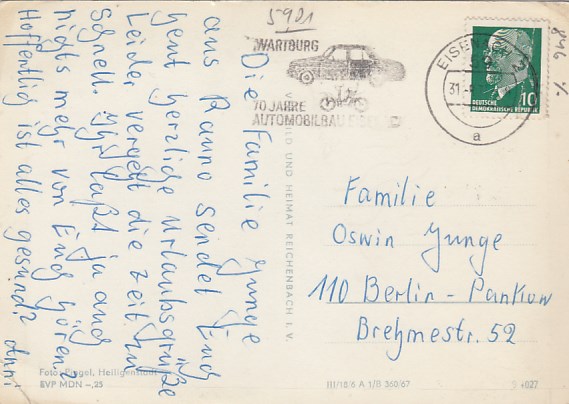 Die Familie Junge
aus Ranno sendet Euch
ganz herzliche Urlaubsgrüße
Leider vergeht die Zeit zu
schnell. Ihr laßt ja auch
nichts mehr von Euch hören?
Hoffentlich ist alles gesund? Anni
5901
WARTBURG
70 JAHRE
AUTOMOBILBAU
31.
a
DEUTSCHE
DEMOKRATISCHE REPUBLIK
10
BILD UND HEIMAT REICHENBACH I. V.
Familie
Oswin Junge
110 Berlin-Pankow
Brehmestr. 52
Heiligenstadt
EVP MDN –,25
III/18/6 A 1/B 360/67